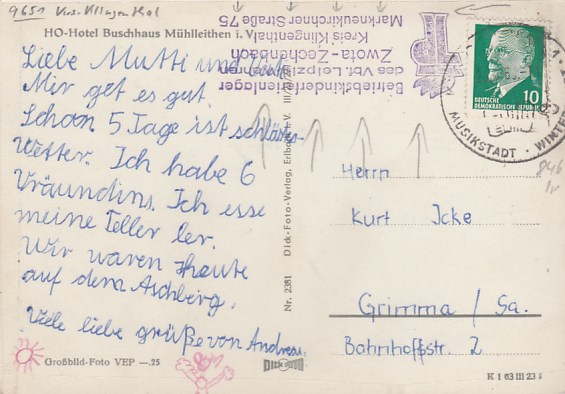 9651 Krs. Klingenthal
HO-Hotel Buschhaus Mühlleithen i. V.
Liebe Mutti und
Mir get es gut.
Schon 5 Tage ist schlästes
Wetter. Ich habe 6
Vräundins. Ich esse
meine Teller ler.
Wir waren Heute
auf dem Aschberg.
Viele liebe grüße von Andreas.
Großbild-Foto VEP —.25
Nr. 2381 Dick-Foto-Verlag, Erlbach i. V. III
DICK FOTO
Betriebskinderferienlager
des Vbl. Leipzig
Zwota-Zechenbach
Kreis Klingenthal
Markneukirchner Straße 75
DEUTSCHE
DEMOKRATISCHE REPUBLIK
10
MUSIKSTADT · WINTER
846
Herrn
Kurt Icke
Grimma / Sa.
Bahnhofstr. 2
K 1 63 III 23